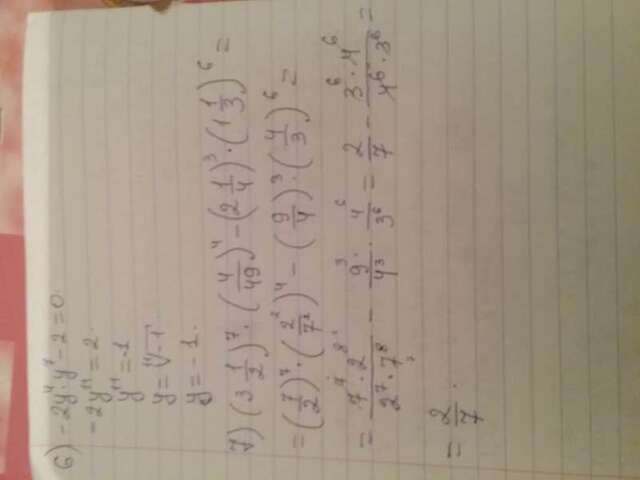 6) -2y⁴·y⁷-2=0.
-2y¹¹=2.
y¹¹=-1
y=¹¹√-1
y=-1.
7) (3 1/2)⁷·(4/49)⁴-(2 1/4)³·(1 1/3)⁶=
=(7/2)⁷·(2²/7²)⁴-(9/4)³·(4/3)⁶=
=7⁷·2⁸/2⁷·7⁸ - 9³/4³·4⁶/3⁶=2/7-3⁶·4⁶/4⁶·3⁶=
=2/7.